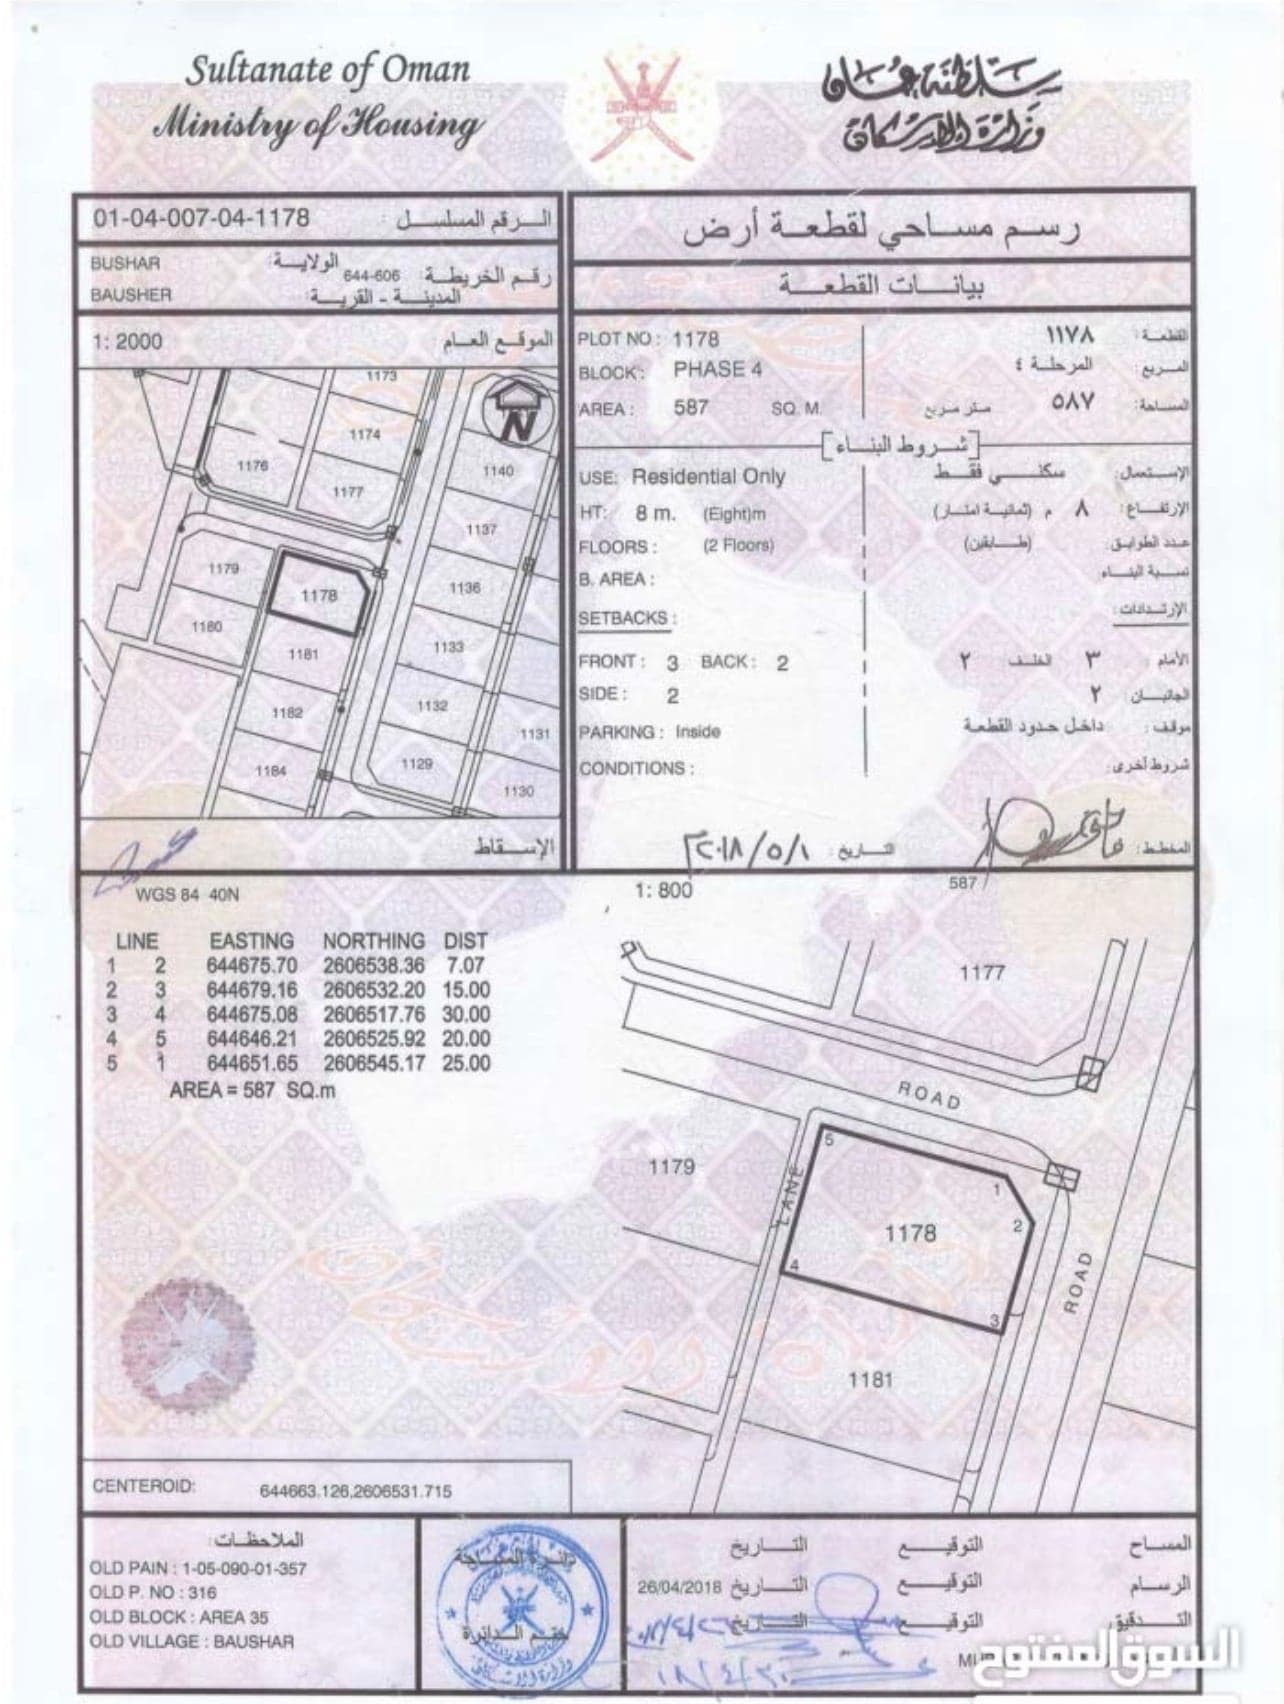 Sultanate of Oman
Ministry of Housing
سلطنة عمان
وزارة الإسكان
01-04-007-04-1178 الرقم المسلسل :
BUSHAR الولاية:
رقم الخريطة: 644-606
BAUSHER المدينة - القرية:
1: 2000 الموقع العام :
1173
1174
1176
1177
1140
1137
1179
1178
1136
1180
1181
1133
1182
1132
1131
1184
1129
1130
N
الإسقاط
رسم مساحي لقطعة أرض
بيانات القطعة
PLOT NO : 1178
القطعة : ١١٧٨
BLOCK : PHASE 4
المربع : المرحلة ٤
AREA : 587 SQ. M.
المساحة: ٥٨٧ متر مربع
[شروط البناء]
USE: Residential Only
الإستعمال: سكني فقط
HT: 8 m. (Eight)m
الإرتفاع: ٨ م (ثمانية امتار)
FLOORS : (2 Floors)
عدد الطوابق: (طابقين)
B. AREA :
نسبة البناء :
SETBACKS :
الإرتدادات:
FRONT : 3 BACK : 2
الأمام : ٣ الخلف ٢
SIDE : 2
الجانبان ٢
PARKING : Inside
موقف : داخل حدود القطعة
CONDITIONS :
شروط أخرى:
المخطط:
التاريخ : ٢٠١٨/٥/١م
WGS 84 40N
LINE EASTING NORTHING DIST
1 2 644675.70 2606538.36 7.07
2 3 644679.16 2606532.20 15.00
3 4 644675.08 2606517.76 30.00
4 5 644646.21 2606525.92 20.00
5 1 644651.65 2606545.17 25.00
AREA = 587 SQ.m
1: 800
587
1177
ROAD
1179
LANE
5
1
2
1178
4
3
ROAD
1181
CENTEROID: 644663.126,2606531.715
الملاحظات:
OLD PAIN : 1-05-090-01-357
OLD P. NO : 316
OLD BLOCK : AREA 35
OLD VILLAGE : BAUSHAR
دائرة المساحة
ختم الدائرة
المساح التوقيع التاريخ
الرسام التوقيع التاريخ 26/04/2018
التدقيق التوقيع التاريخ
السوق المفتوح